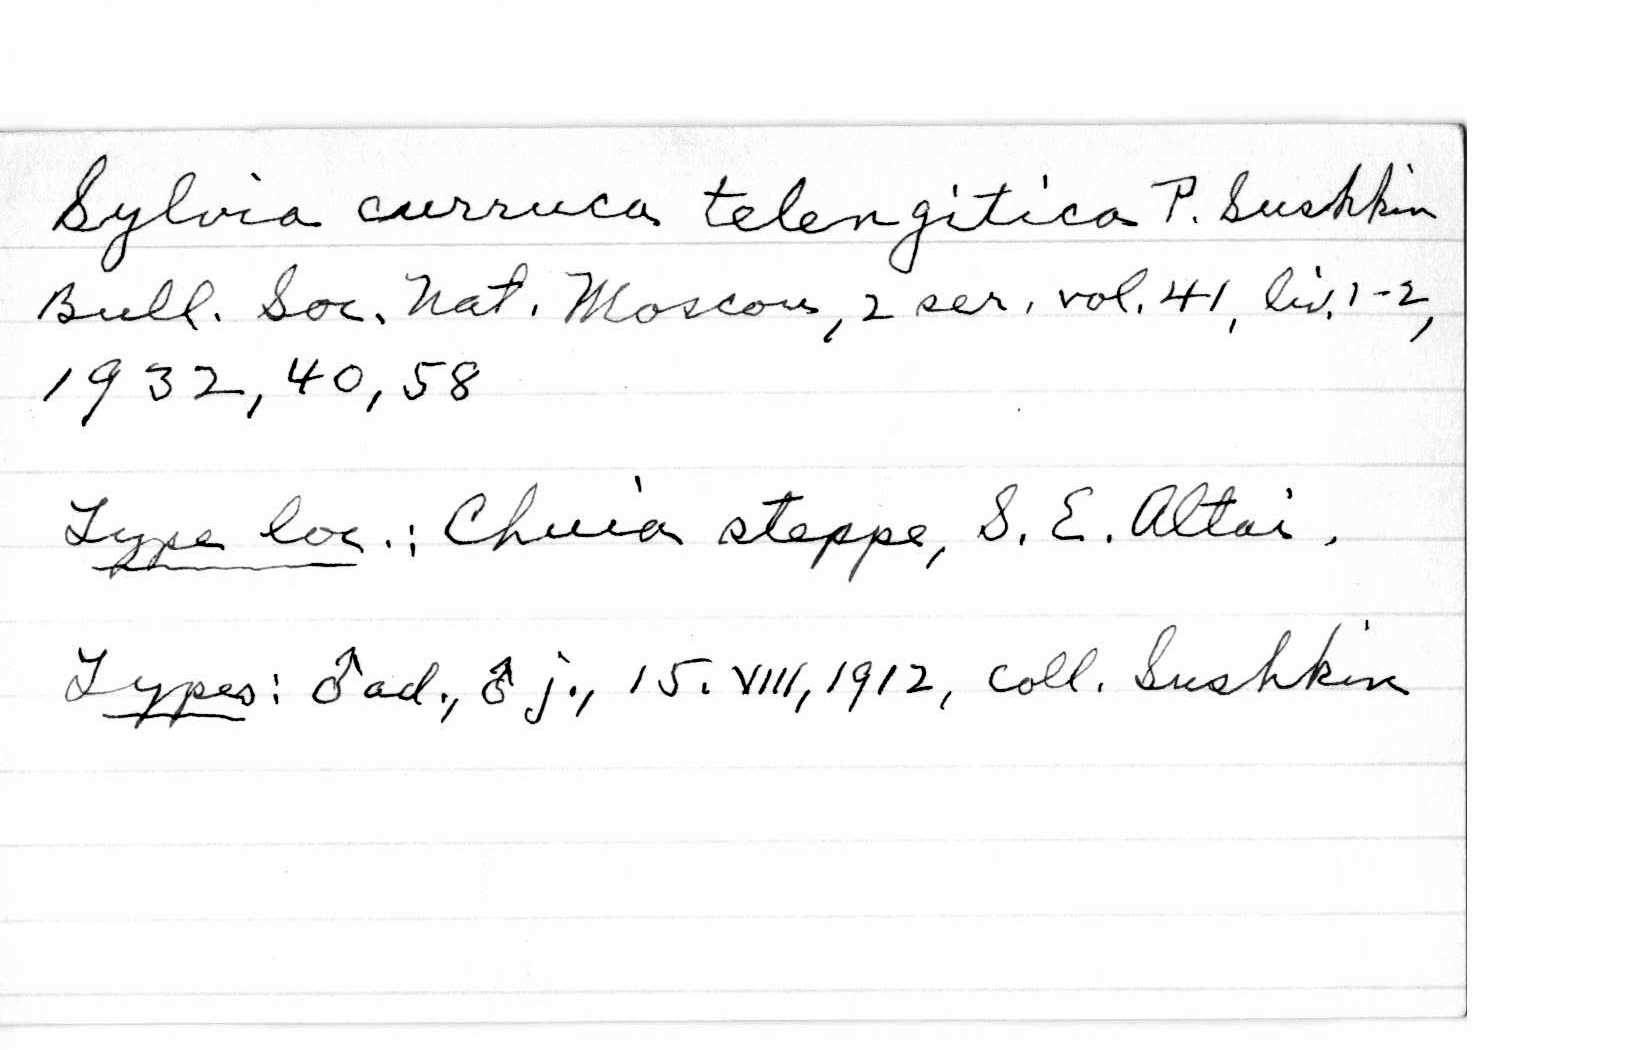 Sylvia curruca telengitica P. Sushkin
Bull. Soc. Nat. Moscow, 2 ser. vol. 41, liv. 1-2,
1932, 40, 58
Type loc.: Chuia steppe, S. E. Altai.
Types: ♂ ad., ♂ j., 15. VIII, 1912, coll. Sushkin